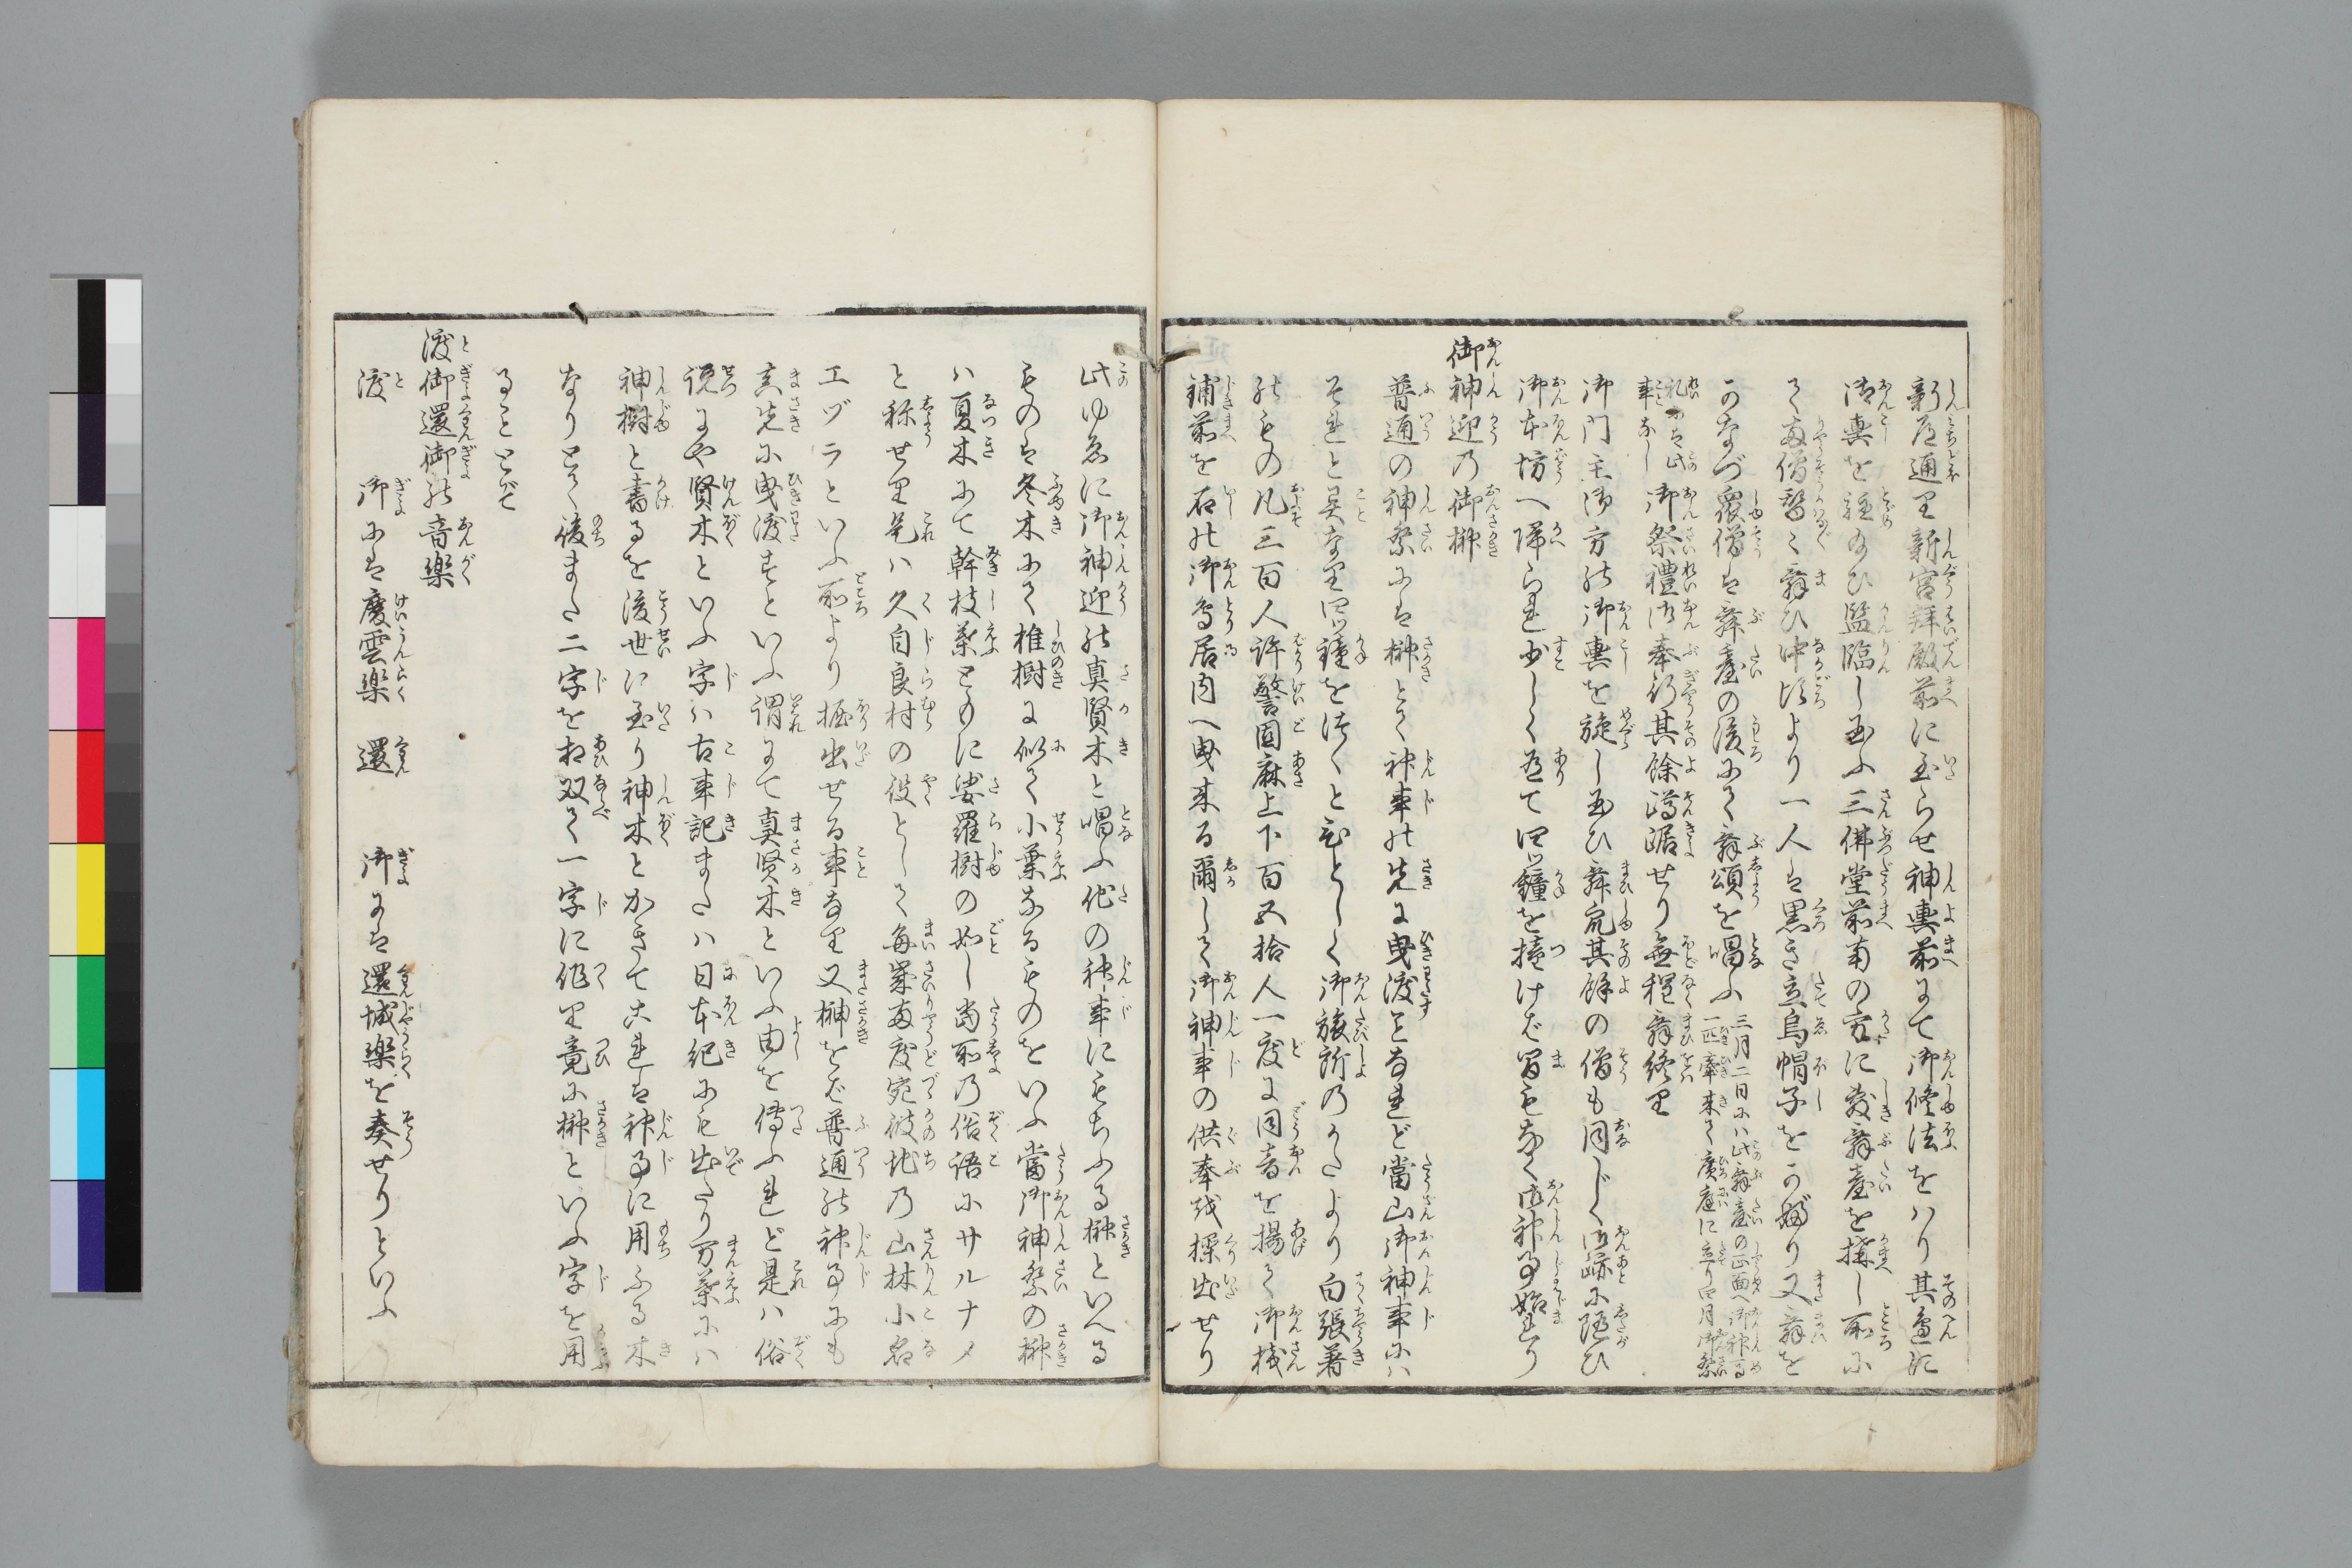 新道通里新宮拝殿前に至らせ神輿前にて御修法をはり其邊に
御輿を駐給ひ監臨し玉ふ三佛堂前南の方に敷舞臺を搆し所に
て両僧暫く舞ひ中頃より一人は黒き立烏帽子をかぶり又舞を
かなづ衆僧は舞臺の後にて舞頌を唱ふ
三月二日には此舞臺の正面へ御神馬
一匹牽来て廣庭に立り四月御祭
礼には此
事なし
御祭禮御奉行其餘蹲踞せり無程舞終里
御門主御方の御輿を旋し玉ひ舞衆其餘の僧も同じく御跡に随ひ
御本坊へ帰られ少しく有て四ツ鐘を撞けば間もなく御神事始まり
御神迎乃御榊
普通の神祭には榊とて神事の先に曳渡となれど當山御神事には
それと異な里四ツ鐘をつくと ひとしく御旅所のかたより白張着
せしもの凡三百人許警固麻上下百五拾人一度に同音を揚て御棧
鋪前を石の御鳥居内へ曳来る爾して御神事の供奉を操出せり
此ゆゑに御神迎の真賢木と唱ふ他の神事にもちふる榊といへる
ものは冬木にて椎樹に似て小葉なるものをいふ當御神祭の榊
ハ夏木にて幹枝葉ともに娑羅樹の如し當所乃俗語にサルナメ
と称せ里是ハ久自良村の役として毎歳両度宛彼地乃山林小名
エヅラといふ所より掘出せる事な里又榊をば普通の神事にも
真先に曳渡すといふ謂にて真賢木といふ由を傳ふれど是ハ俗
説にや賢木といふ字ハ古事記またハ日本紀にも出たり万葉にハ
神樹と書るを後世に至り神木とかきて これは神事に用ふる木
なりとて後また二字を相双て一字に作里竟に榊といふ字を用
ることとぞ
渡御還御の音樂
渡　御には慶雲樂　還　御には還城樂を奏せりといふ